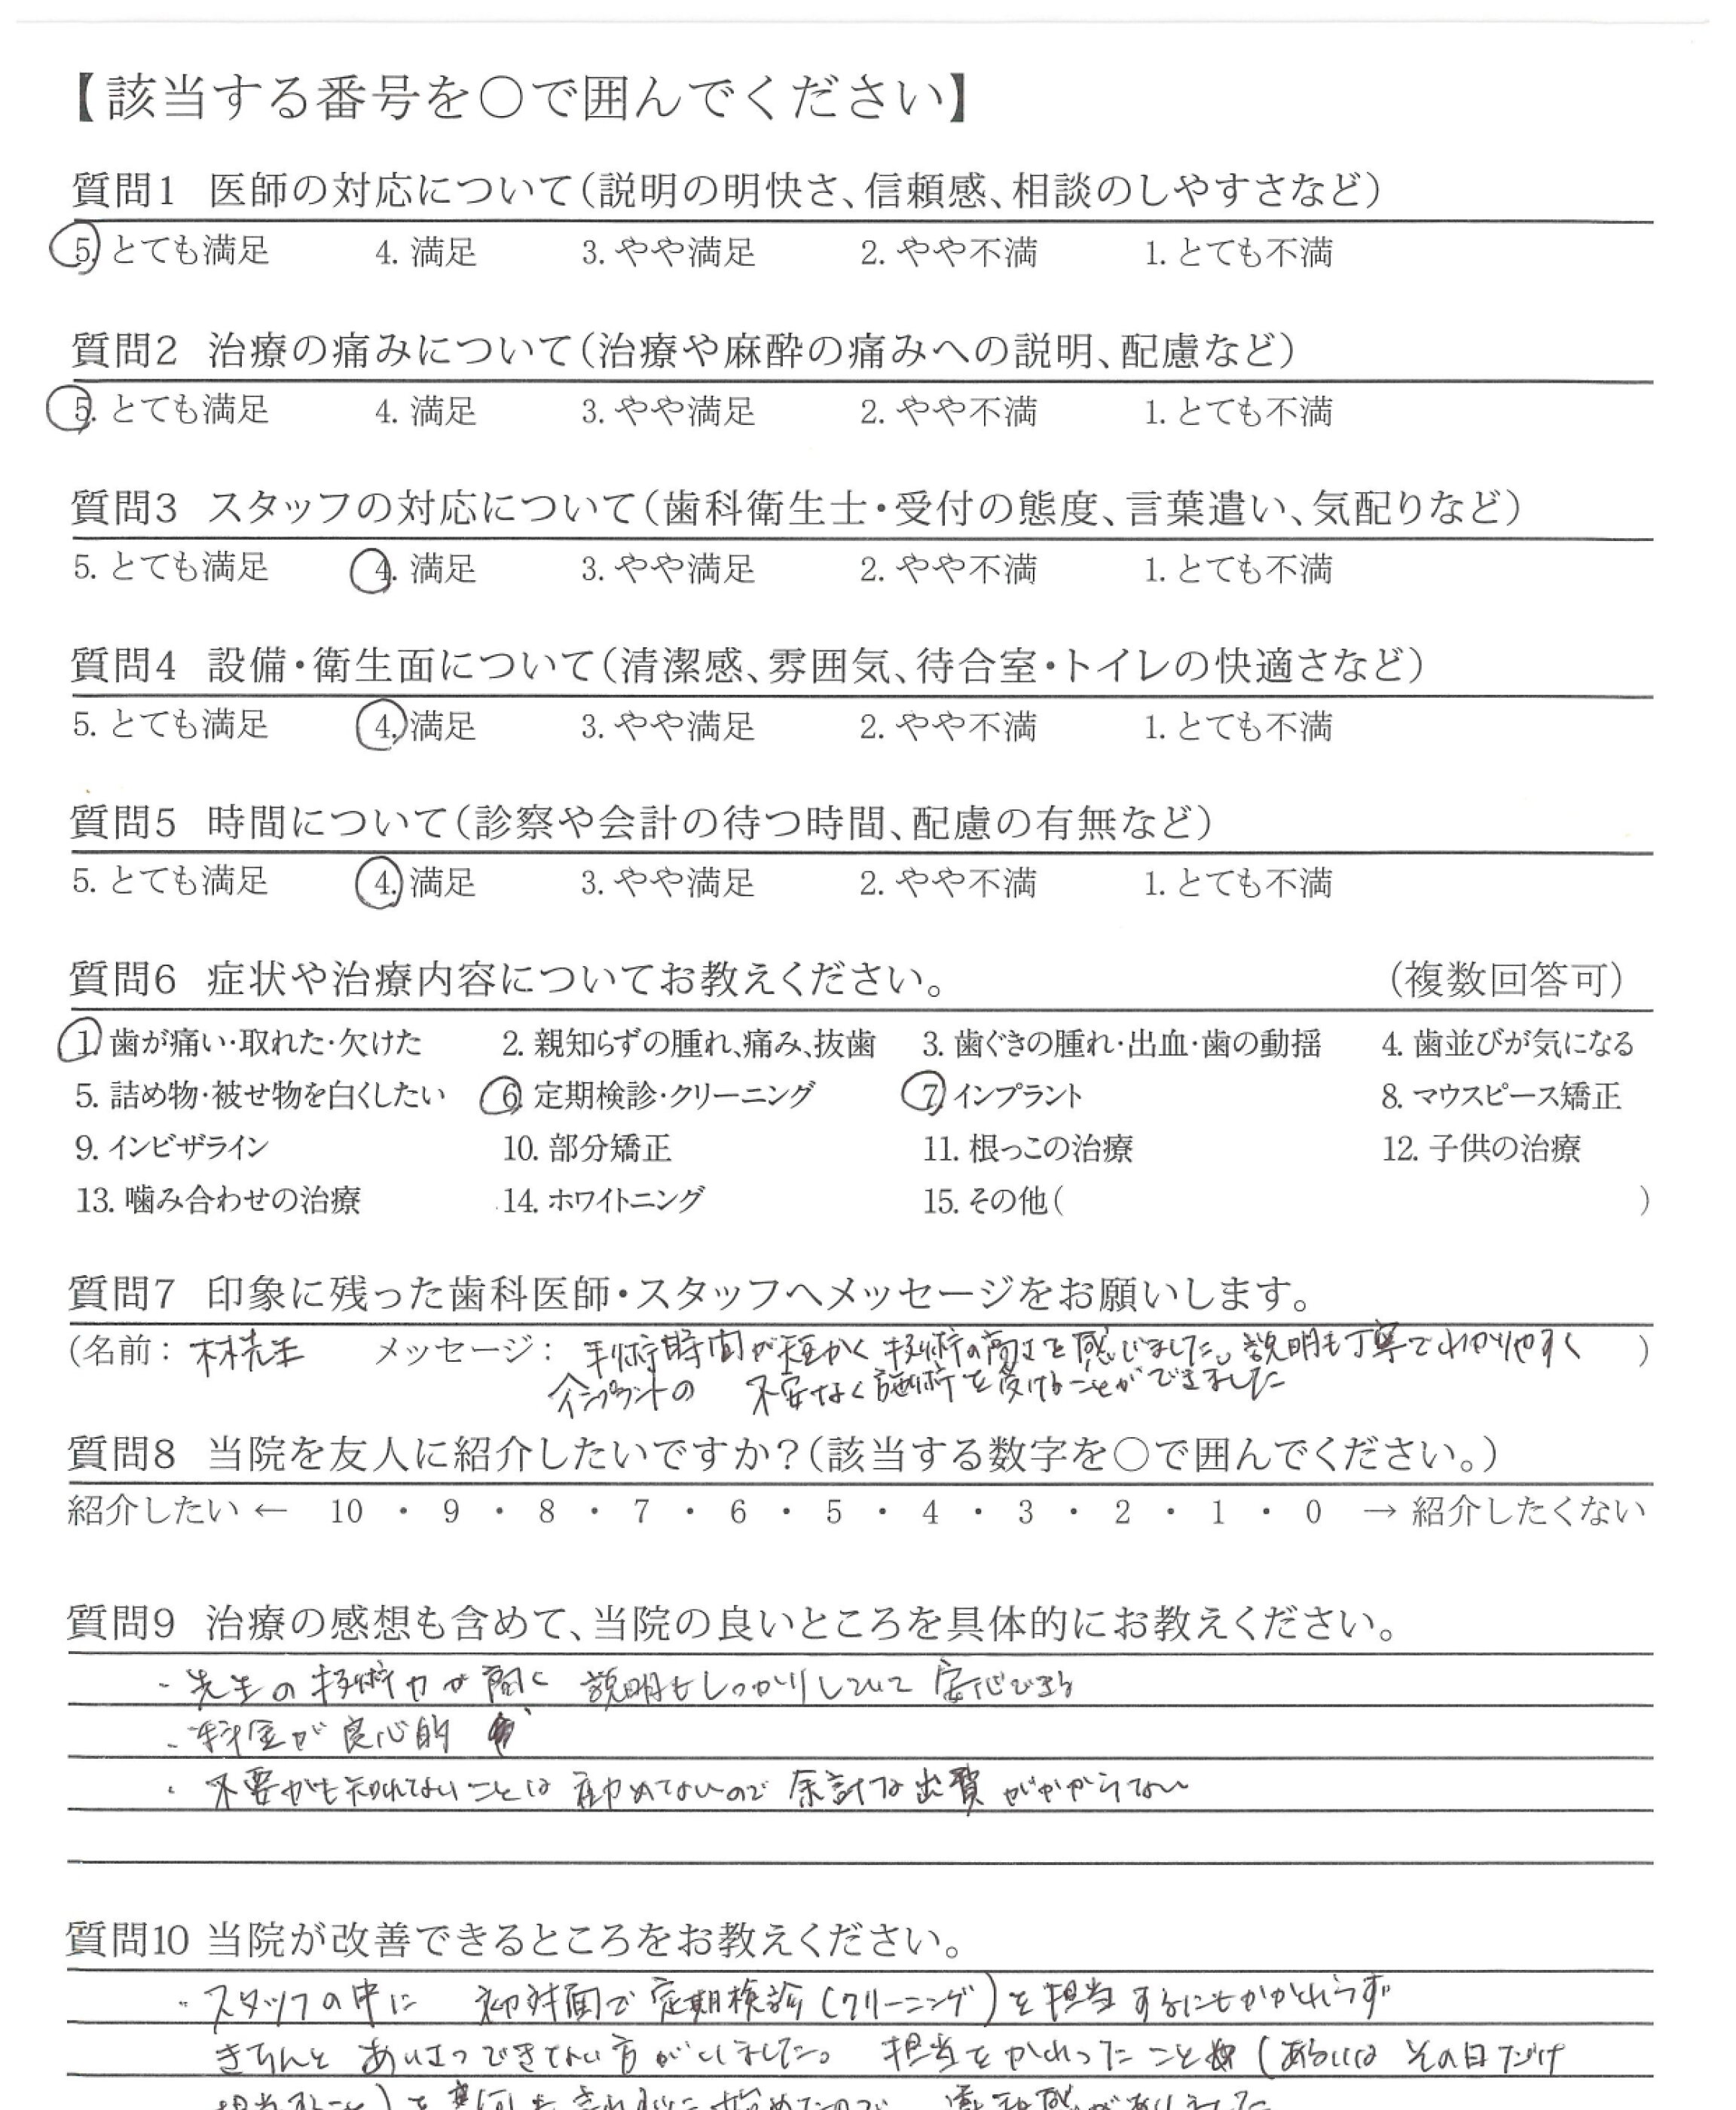 【該当する番号を○で囲んでください】
質問1 医師の対応について(説明の明快さ、信頼感、相談のしやすさなど)
5. とても満足 4. 満足 3. やや満足 2. やや不満 1. とても不満
質問2 治療の痛みについて(治療や麻酔の痛みへの説明、配慮など)
5. とても満足 4. 満足 3. やや満足 2. やや不満 1. とても不満
質問3 スタッフの対応について(歯科衛生士・受付の態度、言葉遣い、気配りなど)
5. とても満足 4. 満足 3. やや満足 2. やや不満 1. とても不満
質問4 設備・衛生面について(清潔感、雰囲気、待合室・トイレの快適さなど)
5. とても満足 4. 満足 3. やや満足 2. やや不満 1. とても不満
質問5 時間について(診察や会計の待つ時間、配慮の有無など)
5. とても満足 4. 満足 3. やや満足 2. やや不満 1. とても不満
質問6 症状や治療内容についてお教えください。 (複数回答可)
1. 歯が痛い・取れた・欠けた 2. 親知らずの腫れ、痛み、抜歯 3. 歯ぐきの腫れ・出血・歯の動揺 4. 歯並びが気になる
5. 詰め物・被せ物を白くしたい 6. 定期検診・クリーニング 7. インプラント 8. マウスピース矯正
9. インビザライン 10. 部分矯正 11. 根っこの治療 12. 子供の治療
13. 噛み合わせの治療 14. ホワイトニング 15. その他( )
質問7 印象に残った歯科医師・スタッフへメッセージをお願いします。
(名前: 林先生 メッセージ: 手術時間が短かく技術の高さを感じました。説明も丁寧でわかりやすく )
インプラントの 不安なく施術を受けることができました
質問8 当院を友人に紹介したいですか?(該当する数字を○で囲んでください。)
紹介したい ← 10 ・ 9 ・ 8 ・ 7 ・ 6 ・ 5 ・ 4 ・ 3 ・ 2 ・ 1 ・ 0 → 紹介したくない
質問9 治療の感想も含めて、当院の良いところを具体的にお教えください。
・先生の技術力が高く 説明もしっかりしていて 安心できる
・料金が良心的
・不要かも知れないことは 勧めてないので 余計な出費がかからない
質問10 当院が改善できるところをお教えください。
・スタッフの中に 初対面で定期検診(クリーニング)を担当するにもかかわらず
きちんと あいさつできてない方がいました。 担当をかわったこと (あるいは その日だけ
担当すること)を 始めたので、 違和感がありました